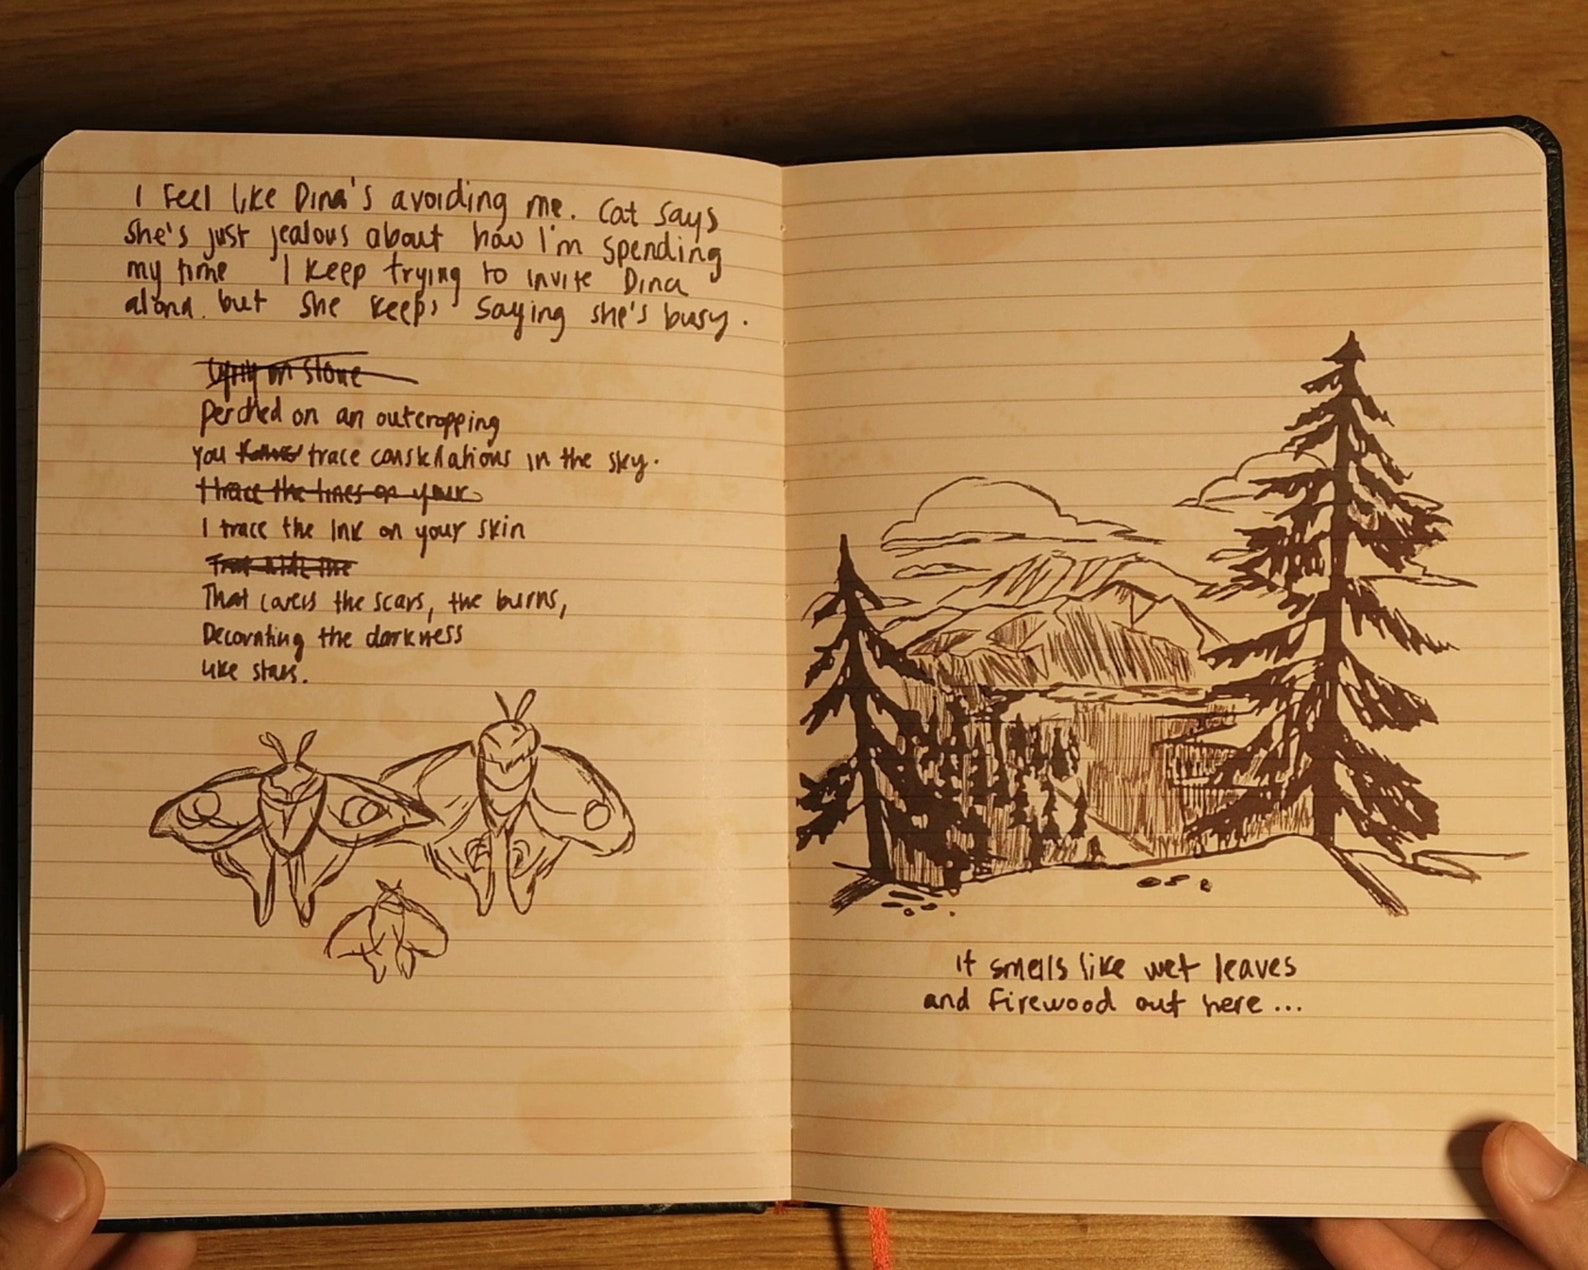 I Feel like Dina's avoiding me. Cat says
She's just jealous about how I'm spending
my time I keep trying to invite Dina
along. but she keeps saying she's busy.
on stone
Perched on an outcropping
you trace constellations in the sky.
I trace the lines on your
I trace the Ink on your skin
That hide the
That covers the scars, the burns,
Decorating the darkness
like stars.
It smells like wet leaves
and Firewood out here...